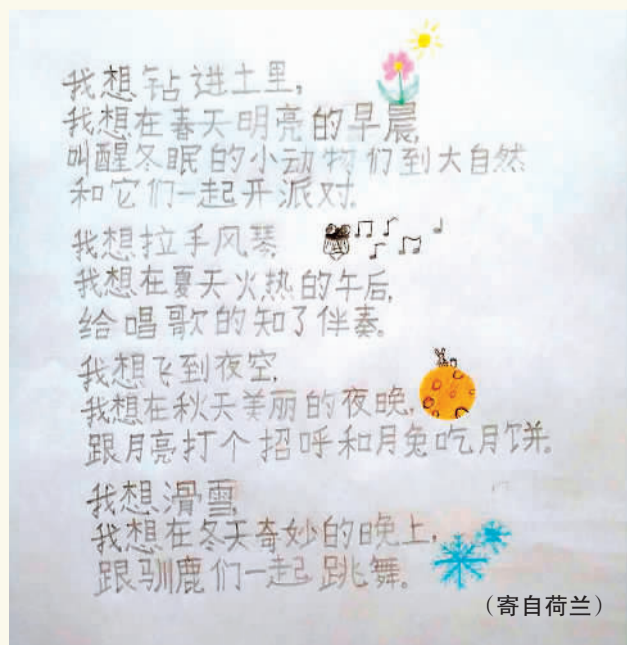 我想钻进土里,
我想在春天明亮的早晨,
叫醒冬眠的小动物们到大自然
和它们一起开派对.
我想拉手风琴,
我想在夏天火热的午后,
给唱歌的知了伴奏。
我想飞到夜空,
我想在秋天美丽的夜晚,
跟月亮打个招呼和月兔吃月饼。
我想滑雪,
我想在冬天奇妙的晚上,
跟驯鹿们一起跳舞。
（寄自荷兰）